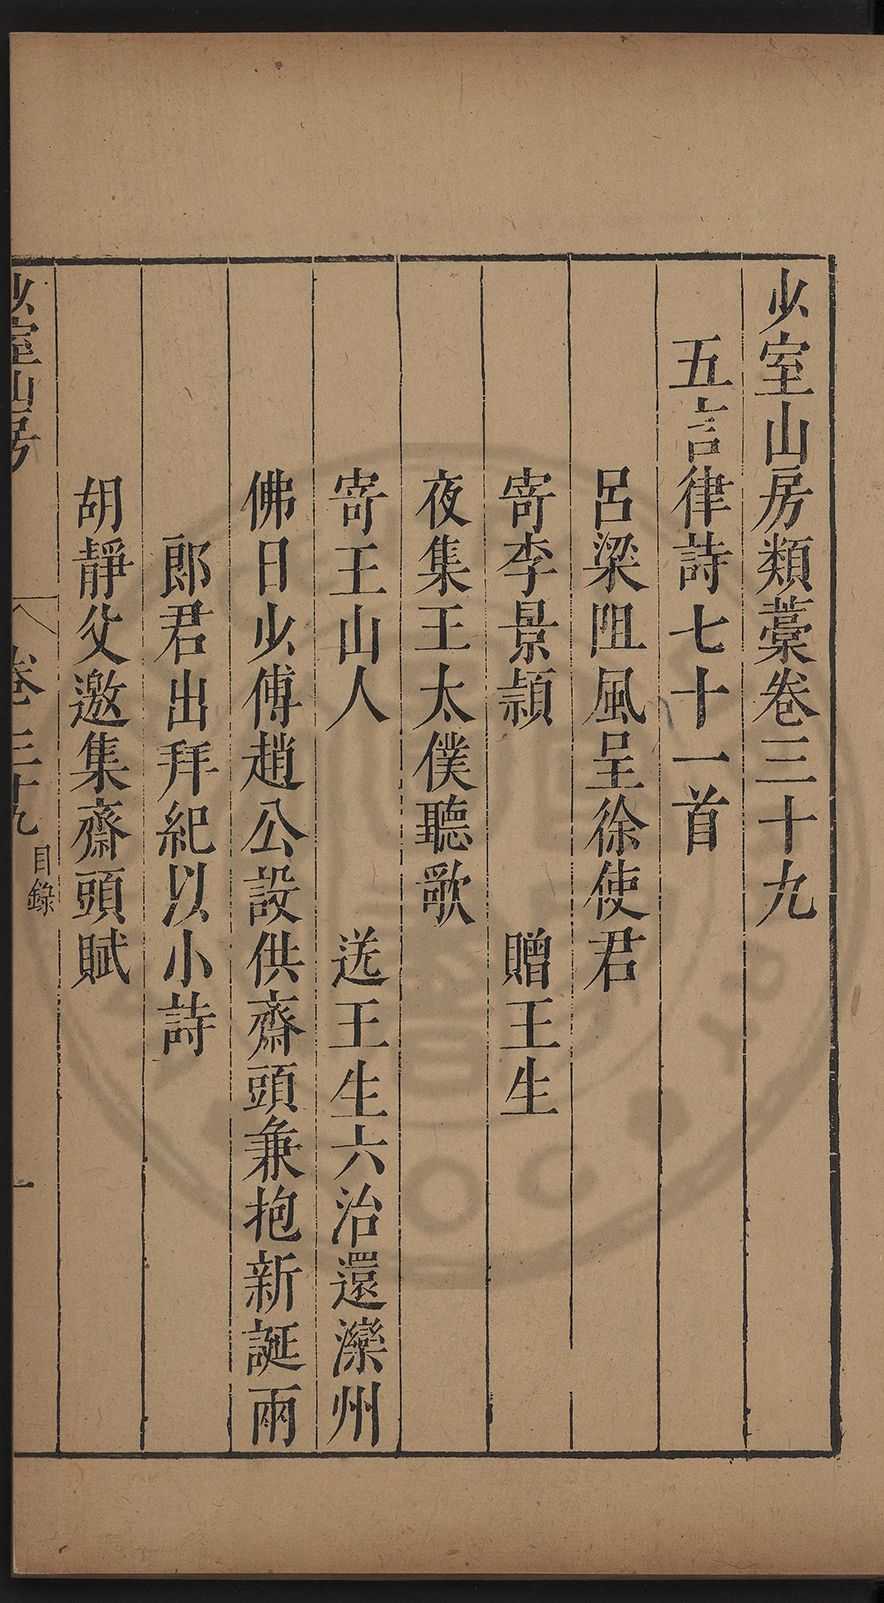 少室山房類藁卷三十九
五言律詩七十一首
呂梁阻風呈徐使君
寄李景頴　贈王生
夜集王太僕聽歌
寄王山人　送王生六治還灤州
佛日少傅趙公設供齋頭兼抱新誕兩
郎君出拜紀以小詩
胡靜父邀集齋頭賦
少室山房　卷三十九　目錄　一